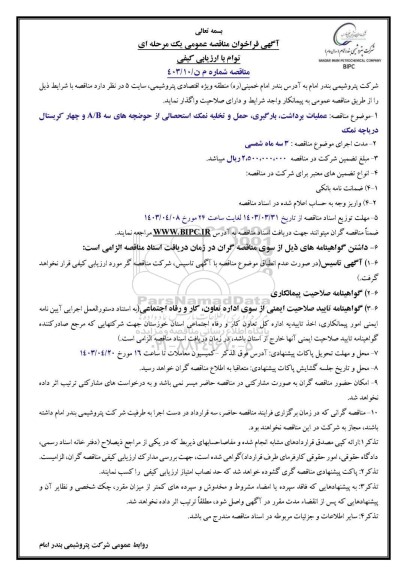 بسمه تعالی
آگهی فراخوان مناقصه عمومی یک مرحله ای
توام با ارزیابی کیفی
مناقصه شماره م ن/۴۰۳/۱۰
شرکت پتروشیمی بندر امام
BANDAR IMAM PETROCHEMICAL COMPANY
BIPC
شرکت پتروشیمی بندر امام به آدرس بندر امام خمینی(ره) منطقه ویژه اقتصادی پتروشیمی، سایت ۵ در نظر دارد مناقصه با شرایط ذیل
را از طریق مناقصه عمومی به پیمانکار واجد شرایط و دارای صلاحیت واگذار نمایند.
۱-موضوع مناقصه: عملیات برداشت، بارگیری، حمل و تخلیه نمک استحصالی از حوضچه های سه A/B و چهار کریستال
دریاچه نمک
۲- مدت اجرای موضوع مناقصه : ۳ سه ماه شمسی
۳- مبلغ تضمین شرکت در مناقصه ۲،۵۰۰،۰۰۰،۰۰۰ ریال میباشد.
۴- انواع تضمین های معتبر برای شرکت در مناقصه:
۴-۱) ضمانت نامه بانکی
۴-۲) واریز وجه به حساب اعلام شده در اسناد مناقصه
۵- مهلت توزیع اسناد مناقصه از تاریخ ۱۴۰۳/۰۳/۳۱ لغایت ساعت ۲۴ مورخ ۱۴۰۳/۰۴/۰۸
ضمناً مناقصه گران میتوانند جهت دریافت اسناد مناقصه به آدرس WWW.BIPC.IR مراجعه نمایند.
۶- داشتن گواهینامه های ذیل از سوی مناقصه گران در زمان دریافت اسناد مناقصه الزامی است:
۶-۱) آگهی تاسیس(در صورت عدم انطباق موضوع مناقصه با آگهی تاسیس، شرکت مناقصه گر مورد ارزیابی کیفی قرار نخواهد
گرفت.)
۶-۲) گواهینامه صلاحیت پیمانکاری
۶-۳) گواهینامه تایید صلاحیت ایمنی از سوی اداره تعاون، کار و رفاه اجتماعی(به استناد دستورالعمل اجرایی آیین نامه
ایمنی امور پیمانکاری، اخذ تاییدیه اداره کل تعاون کار و رفاه اجتماعی استان خوزستان جهت شرکتهایی که مرجع صادرکننده
گواهینامه تایید صلاحیت ایمنی آنها خارج از استان باشد، در زمان دریافت اسناد مناقصه الزامی است.)
۷- محل و مهلت تحویل پاکات پیشنهادی: آدرس فوق الذکر - کمیسیون معاملات تا ساعت ۱۶ مورخ ۱۴۰۳/۰۴/۲۰
۸- محل و تاریخ جلسه گشایش پاکات پیشنهادی: متعاقبا به اطلاع مناقصه گران خواهد رسید.
۹- امکان حضور مناقصه گران به صورت مشارکتی در مناقصه حاضر میسر نمی باشد و به درخواست های مشارکتی ترتیب اثر داده
نخواهد شد.
۱۰- مناقصه گرانی که در زمان برگزاری فرایند مناقصه حاضر ،سه قرارداد در دست اجرا به ظرفیت شرکت پتروشیمی بندر امام داشته
باشند، مجاز به شرکت در این مناقصه نخواهند بود.
تذکر۱:ارائه کپی مصدق قراردادهای مشابه انجام شده و مفاصاحسابهای ذیربط که در یکی از مراجع ذیصلاح (دفتر خانه اسناد رسمی،
دادگاه حقوقی، امور حقوقی کارفرمای طرف قرارداد)گواهی شده است، جهت بررسی مدارک ارزیابی کیفی مناقصه گران، الزامیست.
تذکر۲: پاکت پیشنهادی مناقصه گری گشوده خواهد شد که حد نصاب امتیاز ارزیابی کیفی را کسب نمایند.
تذکر۳: به پیشنهادهایی که فاقد سپرده یا امضاء مشروط و مخدوش و سپرده های کمتر از میزان مقرر، چک شخصی و نظایر آن و
پیشنهادهایی که پس از انقضاء مدت مقرر در آگهی واصل شود، مطلقاً ترتیب اثر داده نخواهد شد.
تذکر۴: سایر اطلاعات و جزئیات مربوطه در اسناد مناقصه مندرج می باشد.
روابط عمومی شرکت پتروشیمی بندر امام